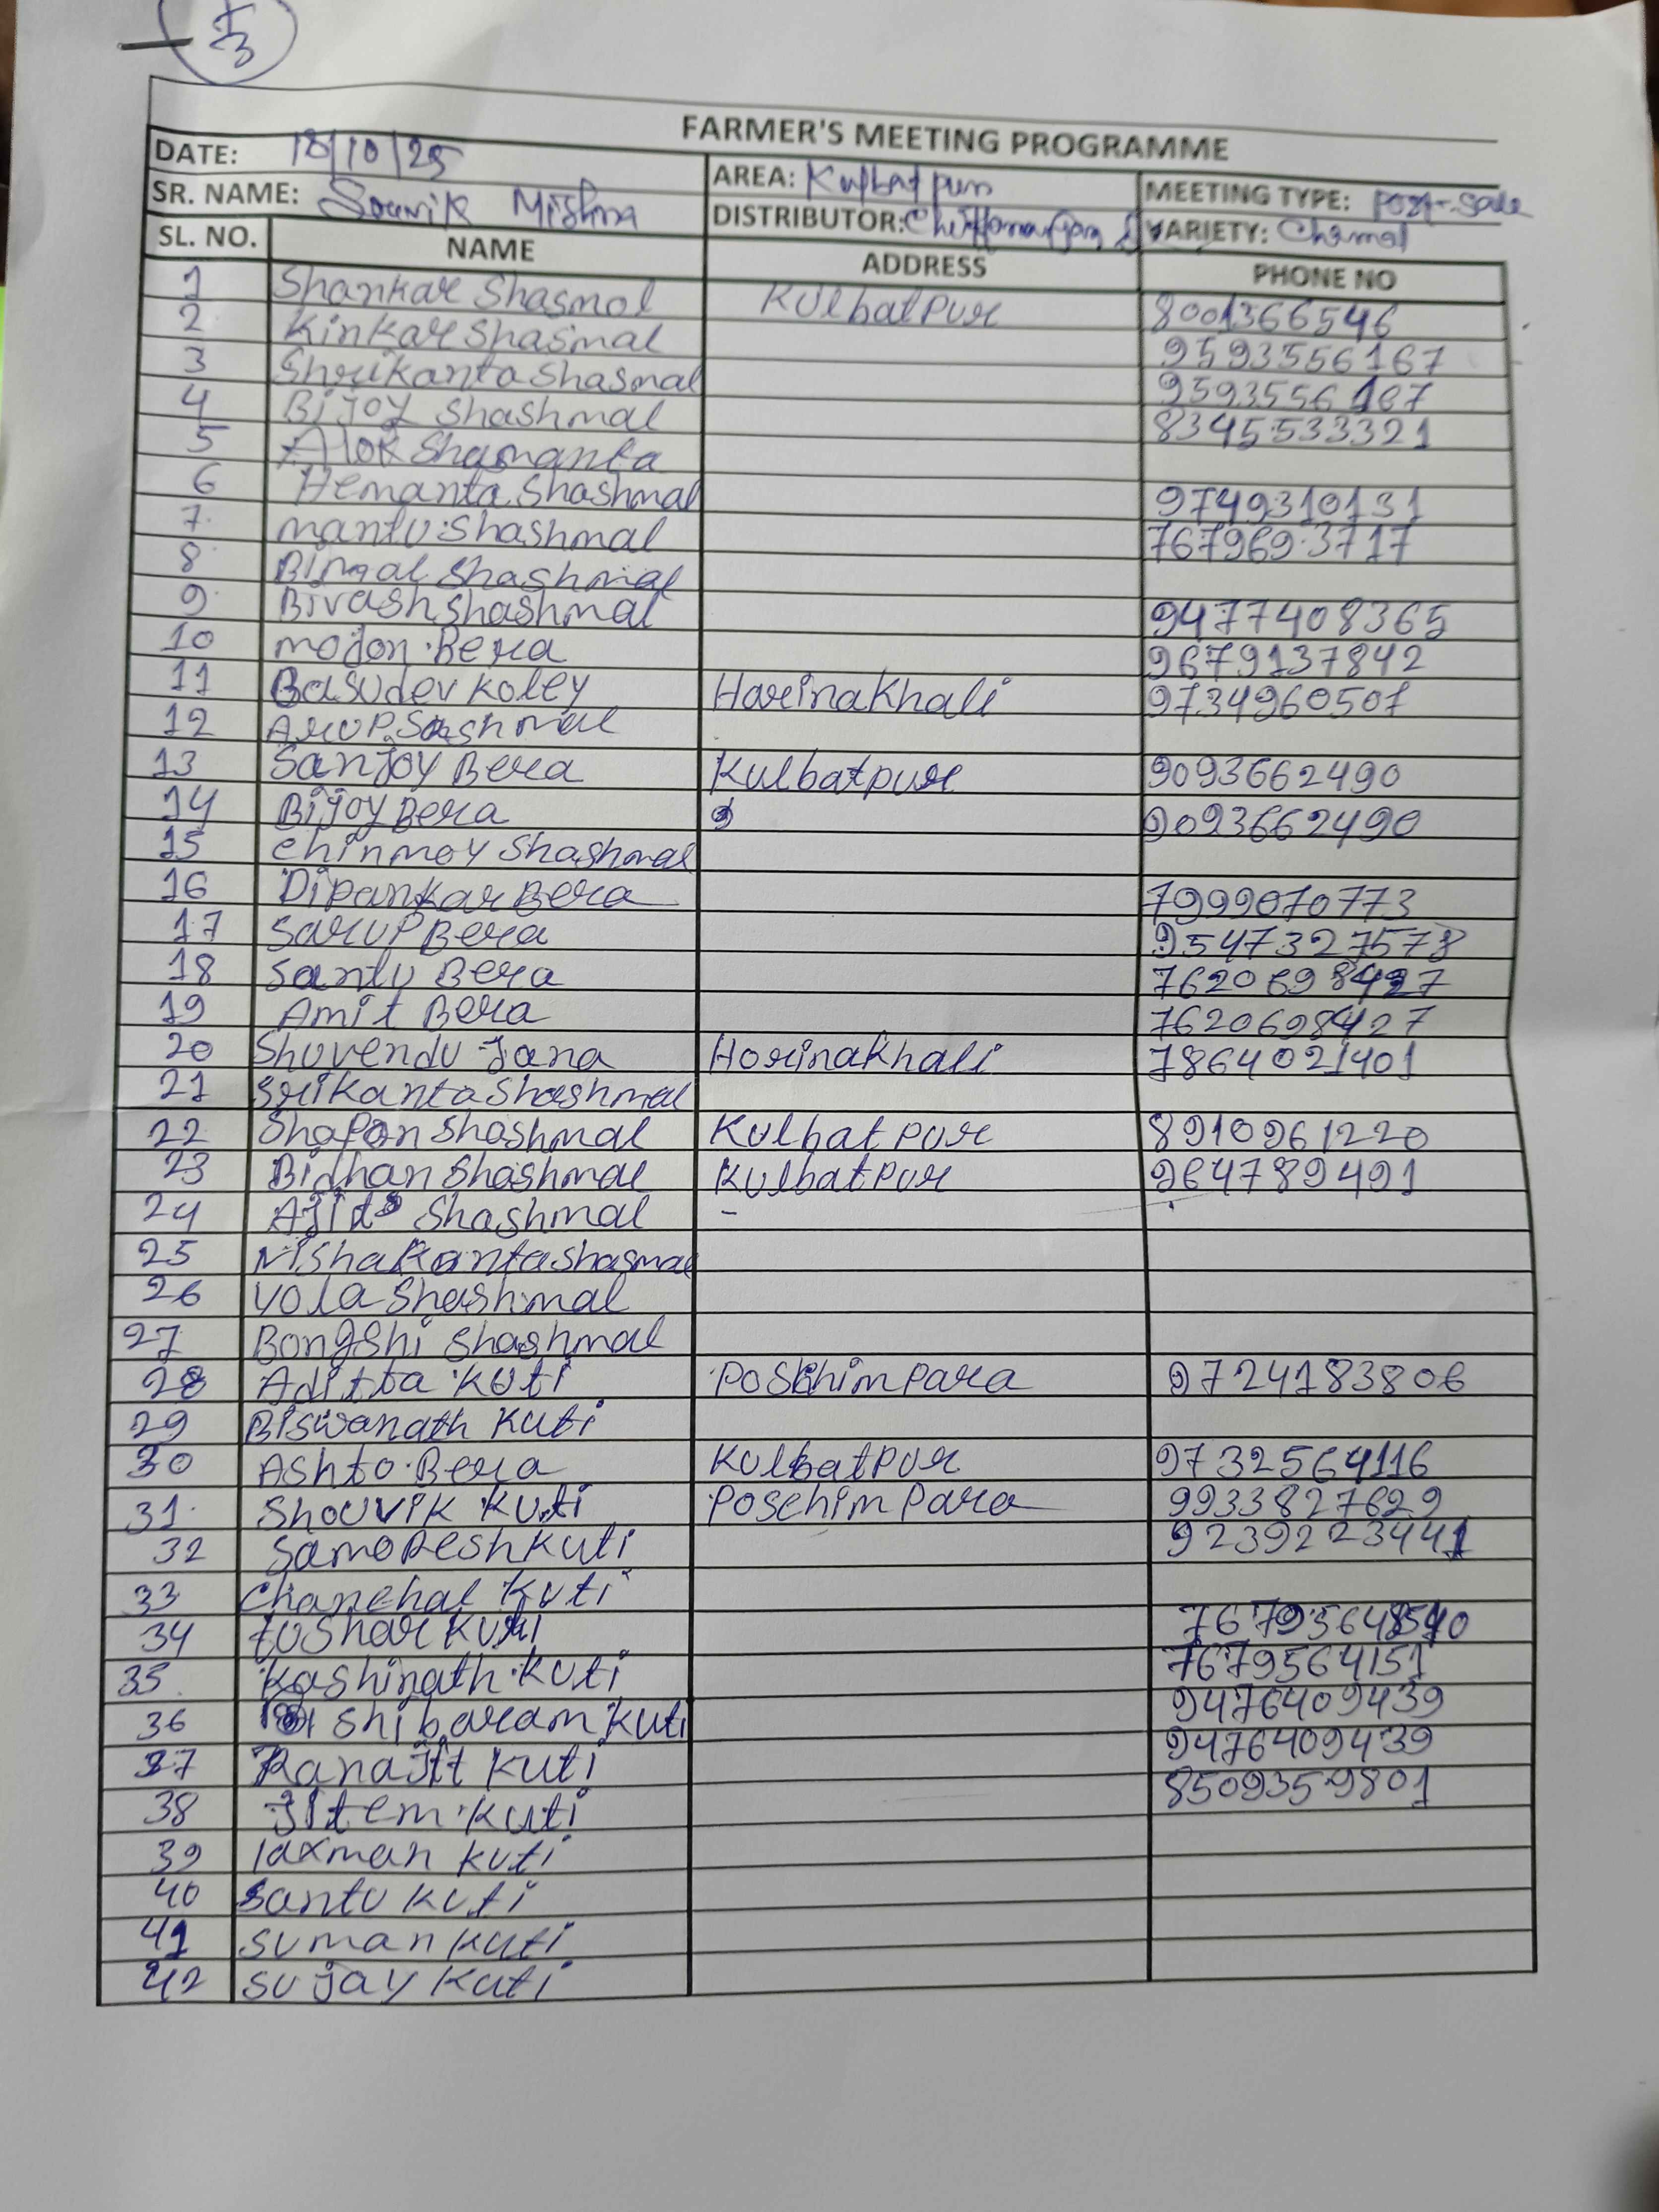 5/3
FARMER'S MEETING PROGRAMME
DATE: 18/10/25 AREA: Kulbatpur MEETING TYPE: Post-Sale
SR. NAME: Souvik Mishra DISTRIBUTOR: VARIETY:
SL. NO. NAME ADDRESS PHONE NO
1 Shankar Shasmol Kulbatpur 8001366546
2 Kinkar Shasmal 9593556167
3 Shrikanta Shasmal 9593556167
4 Bijoy Shashmal 8345533321
5 Alok Shamanta
6 Hemanta Shashmal 9749310131
7 mantu Shashmal 7679693717
8 Bimal Shashmal
9 Bivash Shashmal 9477408365
10 modon Bera 9679137842
11 Basudev Koley Harinakhali 9734960507
12 Arup Sashmal
13 Sanjoy Bera Kulbatpur 9093662490
14 Bijoy Bera 9093662490
15 Chinmoy Shashmal
16 Dipankar Bera 7999070773
17 Sarup Bera 9547327578
18 Santu Bera 7620698427
19 Amit Bera 7620698427
20 Shuvendu Jana Horinakhali 7864021401
21 Srikanta Shashmal
22 Shapon Shashmal Kulbatpur 8910961220
23 Bidhan Shashmal Kulbatpur 964789491
24 Ajit Shashmal -
25 Nishakanta Shasmal
26 Vola Shashmal
27 Bongshi Shashmal
28 Aditta Kuti Poschimpara 9724183806
29 Biswanath Kuti
30 Ashto Bera Kulbatpur 9732564116
31 Shouvik Kuti Poschimpara 9933827629
32 Samopesh Kuti 9239223441
33 Chanchal Kuti
34 tushar Kuti
35 Kashinath Kuti 7679564151
36 Shibaram Kuti 9476409439
37 Ranajit Kuti 9476409439
38 Jitem Kuti 8509359801
39 laxman Kuti
40 Santu Kuti
41 Suman Kuti
42 Sujay Kuti